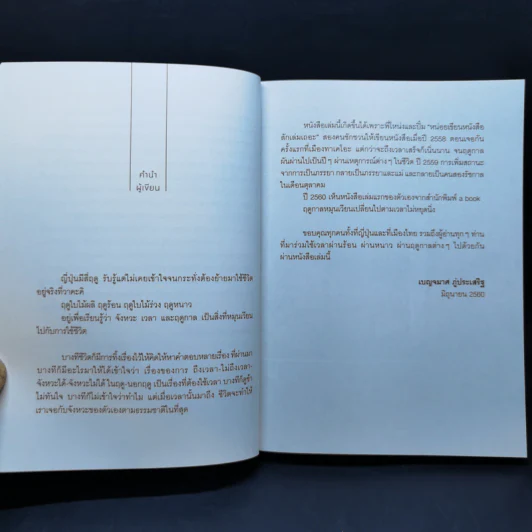 คำนำ
ผู้เขียน
ญี่ปุ่นมีสี่ฤดู รับรู้แต่ไม่เคยเข้าใจจนกระทั่งต้องย้ายมาใช้ชีวิต
อยู่จริงที่วาตะคิ
ฤดูใบไม้ผลิ ฤดูร้อน ฤดูใบไม้ร่วง ฤดูหนาว
อยู่เพื่อเรียนรู้ว่า จังหวะ เวลา และฤดูกาล เป็นสิ่งที่หมุนเวียน
ไปกับการใช้ชีวิต
บางทีชีวิตก็มีการทิ้งเรื่องไว้ให้คิดให้หาคำตอบหลายเรื่อง ที่ผ่านมา
บางทีก็มีอะไรมาให้ได้เข้าใจว่า เรื่องของการ ถึงเวลา-ไม่ถึงเวลา-
จังหวะได้-จังหวะไม่ได้ ในฤดู-นอกฤดู เป็นเรื่องที่ต้องใช้เวลา บางทีก็รู้ช้า
ไม่ทันใจ บางทีก็ไม่เข้าใจว่าทำไม แต่เมื่อเวลานั้นมาถึง ชีวิตจะทำให้
เราเจอกับจังหวะของตัวเองตามธรรมชาติในที่สุด
หนังสือเล่มนี้เกิดขึ้นได้เพราะพี่โหน่งและปิ่ม “หน่อยเขียนหนังสือ
สักเล่มเถอะ” สองคนชักชวนให้เขียนหนังสือเมื่อปี 2558 ตอนเจอกัน
ครั้งแรกที่เมืองทาเคโอะ แต่กว่าจะถึงเวลาเสร็จก็เนิ่นนาน จนฤดูกาล
มันผ่านไปเป็นปีๆ ผ่านเหตุการณ์ต่างๆ ในชีวิต ปี 2559 การเพิ่มสถานะ
จากการเป็นภรรยา กลายเป็นภรรยาและแม่ และกลายเป็นคนสองรัชกาล
ในเดือนตุลาคม
ปี 2560 เห็นหนังสือเล่มแรกของตัวเองจากสำนักพิมพ์ a book
ฤดูกาลหมุนเวียนเปลี่ยนไปตามเวลาไม่หยุดนิ่ง
ขอบคุณทุกคนทั้งที่ญี่ปุ่นและที่เมืองไทย รวมถึงผู้อ่านทุกๆ ท่าน
ที่มาร่วมใช้เวลาผ่านร้อน ผ่านหนาว ผ่านฤดูกาลต่างๆ ไปด้วยกัน
ผ่านหนังสือเล่มนี้
เบญจมาศ ภู่ประเสริฐ
มิถุนายน 2560